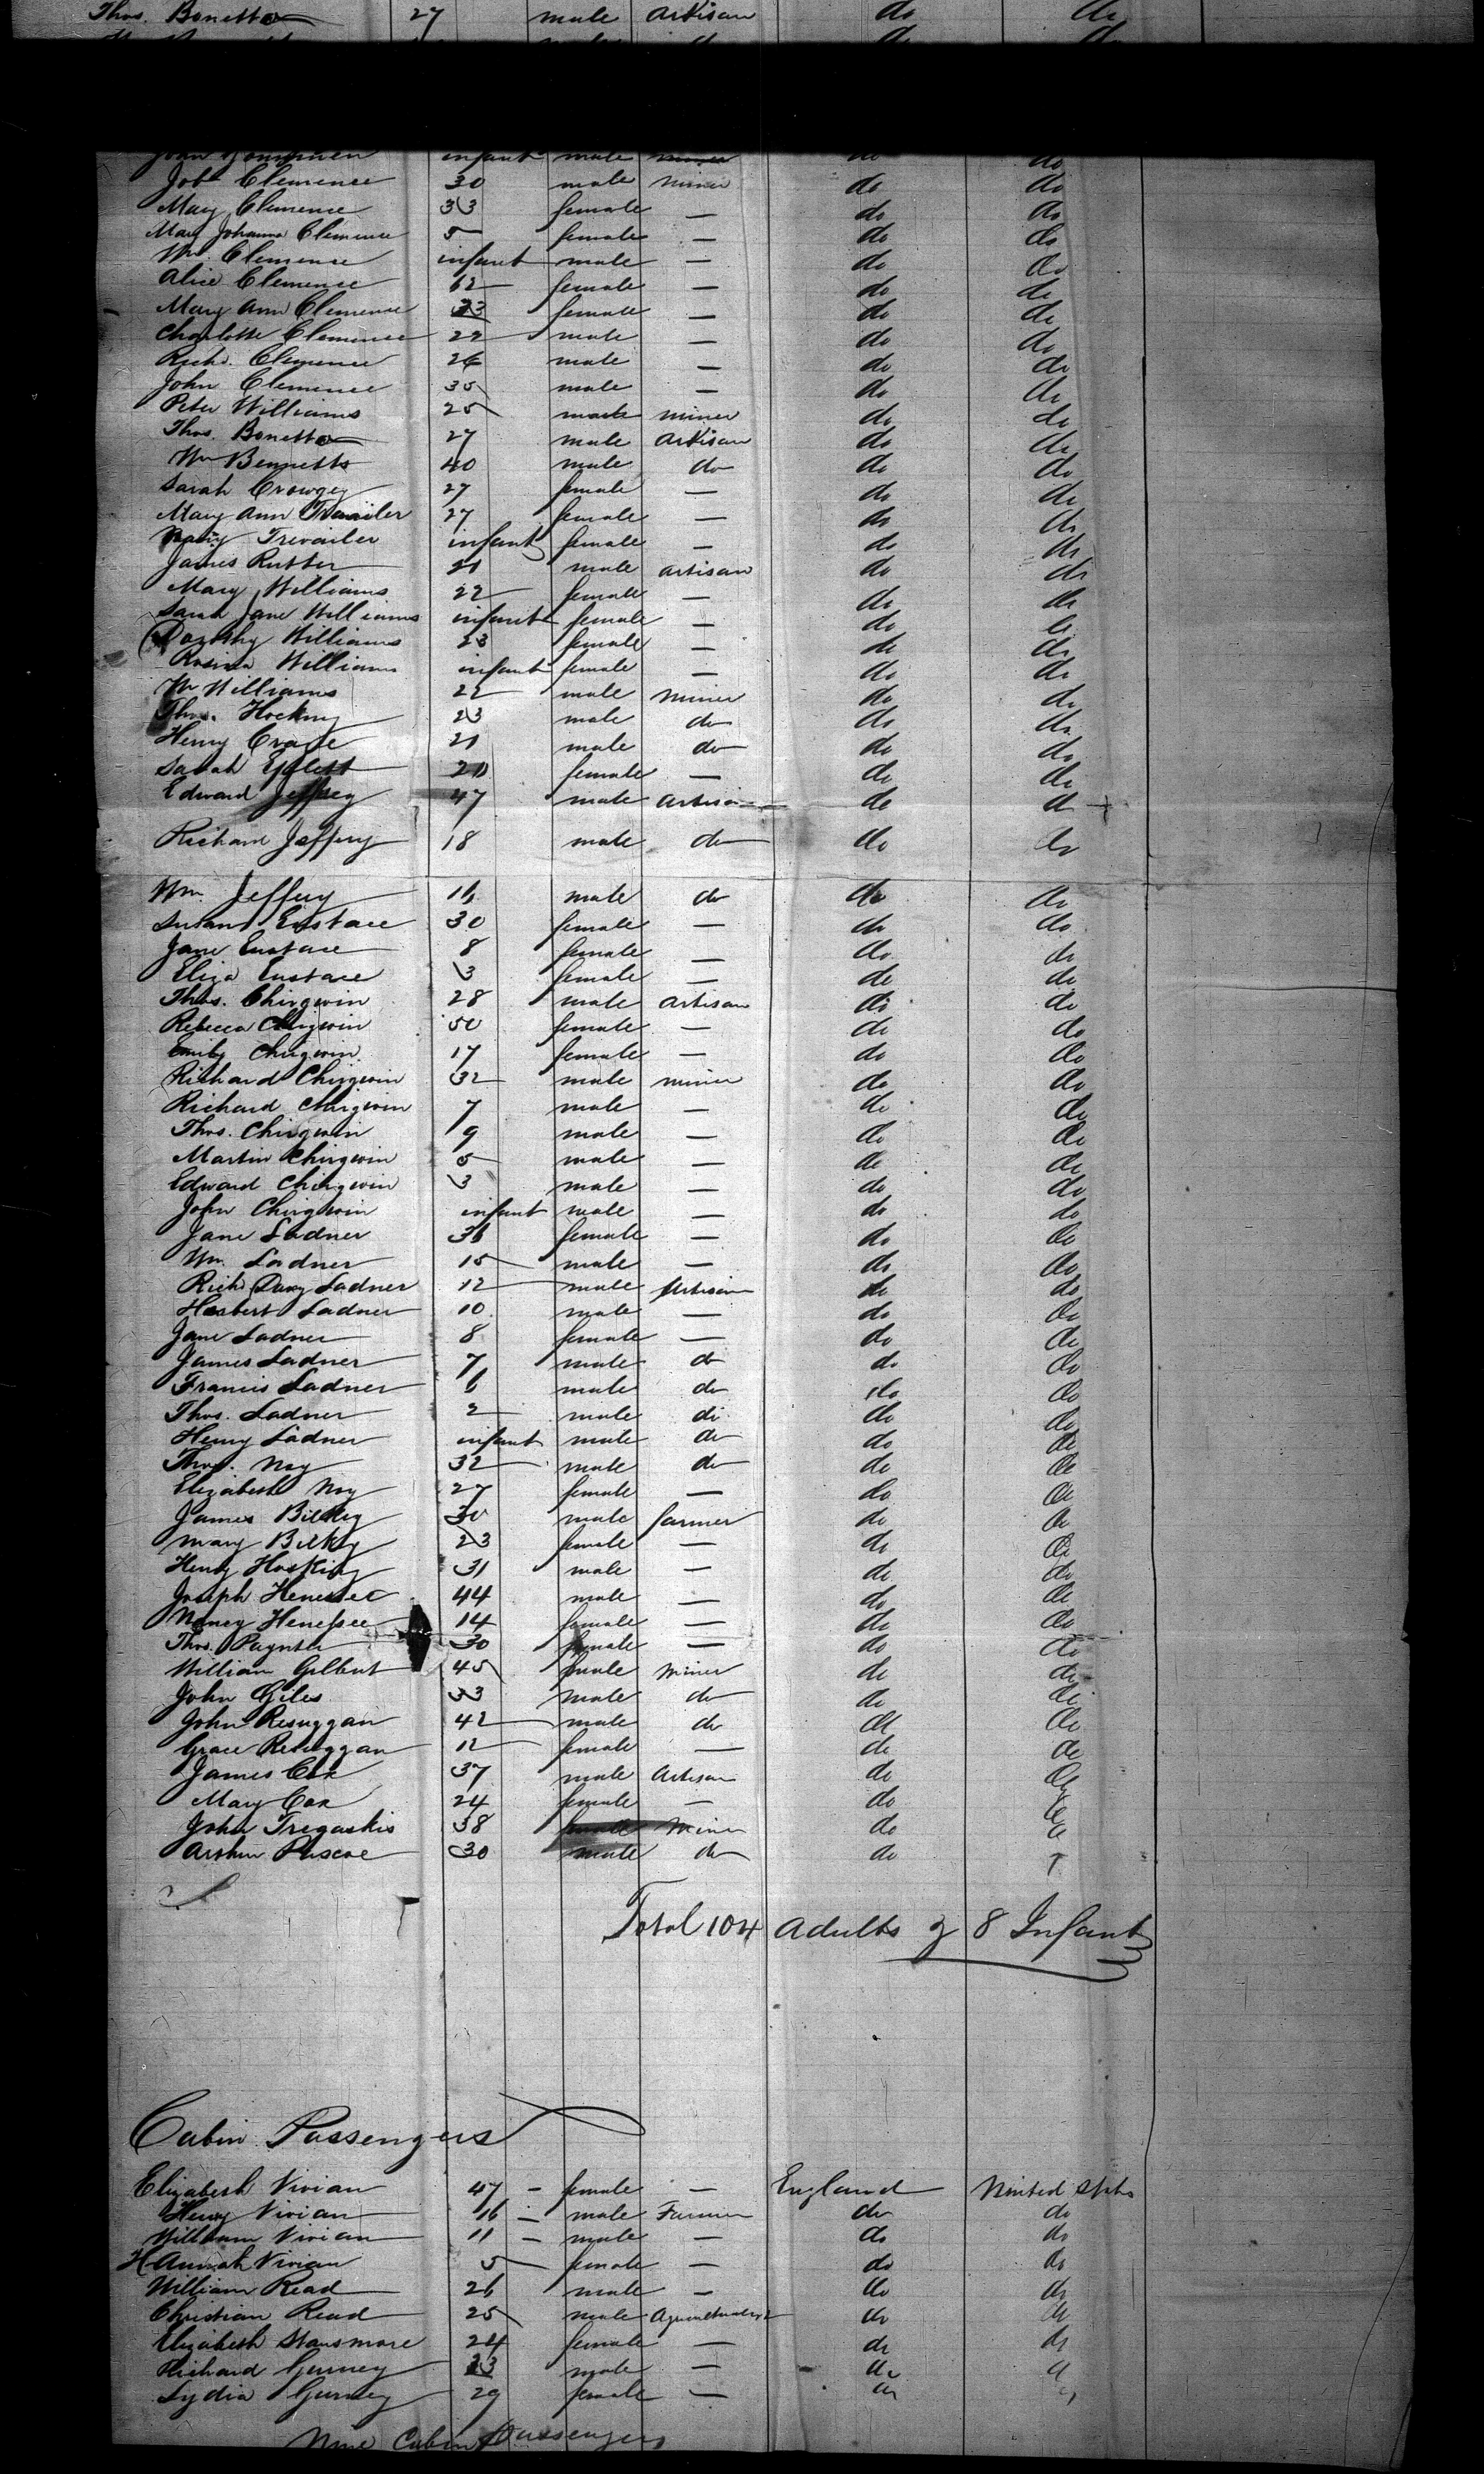 Thos. Bonetto 27 male artisan do do
infant male miner do do
Job Clemence 30 male miner do do
Mary Clemence 33 female — do do
Mary Johanna Clemence 5 female — do do
Wm. Clemence infant male — do do
Alice Clemence 62 female — do do
Mary Ann Clemence 33 female — do do
Charlotte Clemence 22 male — do do
Richd. Clemence 26 male — do do
John Clemence 35 male — do do
Peter Williams 25 male miner do do
Thos. Bonetto 27 male artisan do do
Wm Bennetts 40 male do do do
Sarah Crowgey 27 female — do do
Mary Ann 27 female — do do
Mary Trevailer infant female — do do
James Rutter 21 male artisan do do
Mary Williams 22 female — do do
Sarah Jane Williams infant female — do do
Dorothy Williams 23 female — do do
Rosina Williams infant female — do do
Wm Williams 22 male miner do do
Thos. Hocking 23 male do do do
Henry Craze 21 male do do do
Sarah 20 female — do do
Edward Jeffrey 47 male artisan do do
Richard Jeffery 18 male do do do
Wm. Jeffery 16 male do do do
Susan Eustace 30 female — do do
Jane Eustace 8 female — do do
Eliza Eustace 3 female — do do
Thos. Chirgwin 28 male artisan do do
Rebecca Chirgwin 50 female — do do
Emily Chirgwin 17 female — do do
Richard Chirgwin 32 male miner do do
Richard Chirgwin 7 male — do do
Thos. Chirgwin 9 male — do do
Martin Chirgwin 5 male — do do
Edward Chirgwin 3 male — do do
John Chirgwin infant male — do do
Jane Ladner 36 female — do do
Wm. Ladner 15 male — do do
Richd Davy Ladner 12 male Artisan do do
Herbert Ladner 10 male — do do
Jane Ladner 8 female — do do
James Ladner 7 male do do do
Francis Ladner 6 male do do do
Thos. Ladner 2 male do do do
Henry Ladner infant male do do do
Thos. Noy 32 male do do do
Elizabeth Noy 27 female — do do
James Bilkey 30 male farmer do do
Mary Bilkey 23 female — do do
Henry Hosking 31 male — do do
Joseph Henessee 44 male — do do
Nancy Henessee 14 female — do do
Thos. Paynter 30 female — do do
William Gilbert 45 male miner do do
John Giles 33 male do do do
John Resuggan 42 male do do do
Grace Resuggan 12 female — do do
James Cox 37 male Artisan do do
Mary Cox 24 female — do do
John Tregaskis 38 miner do do
Arthur Pascoe 30 male do do
Total 104 Adults & 8 Infants
Cabin Passengers
Elizabeth Vivian 47 – female — England United States
Henry Vivian 16 – male Farmer do do
William Vivian 11 – male — do do
Hannah Vivian 5 – female — do do
William Read 26 male — do do
Christian Read 25 male Agriculturalist do do
Elizabeth Stansmore 24 female — do do
Richard Gurney 33 male — do do
Lydia Gurney 29 female — do do
Nine Cabin Passengers